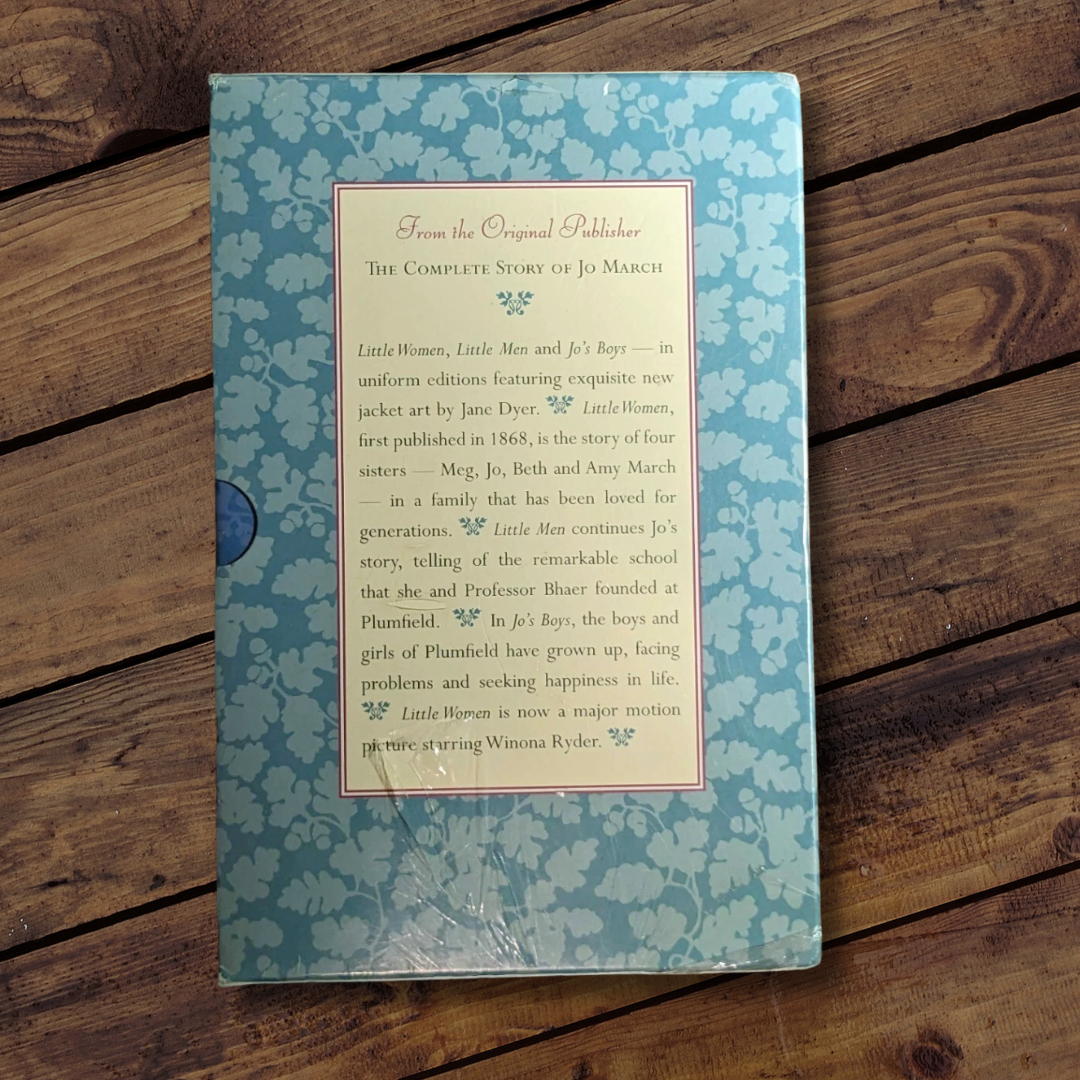 From the Original Publisher
The Complete Story of Jo March
Little Women, Little Men and Jo's Boys — in
uniform editions featuring exquisite new
jacket art by Jane Dyer. Little Women,
first published in 1868, is the story of four
sisters — Meg, Jo, Beth and Amy March
— in a family that has been loved for
generations. Little Men continues Jo's
story, telling of the remarkable school
that she and Professor Bhaer founded at
Plumfield. In Jo's Boys, the boys and
girls of Plumfield have grown up, facing
problems and seeking happiness in life.
Little Women is now a major motion
picture starring Winona Ryder.